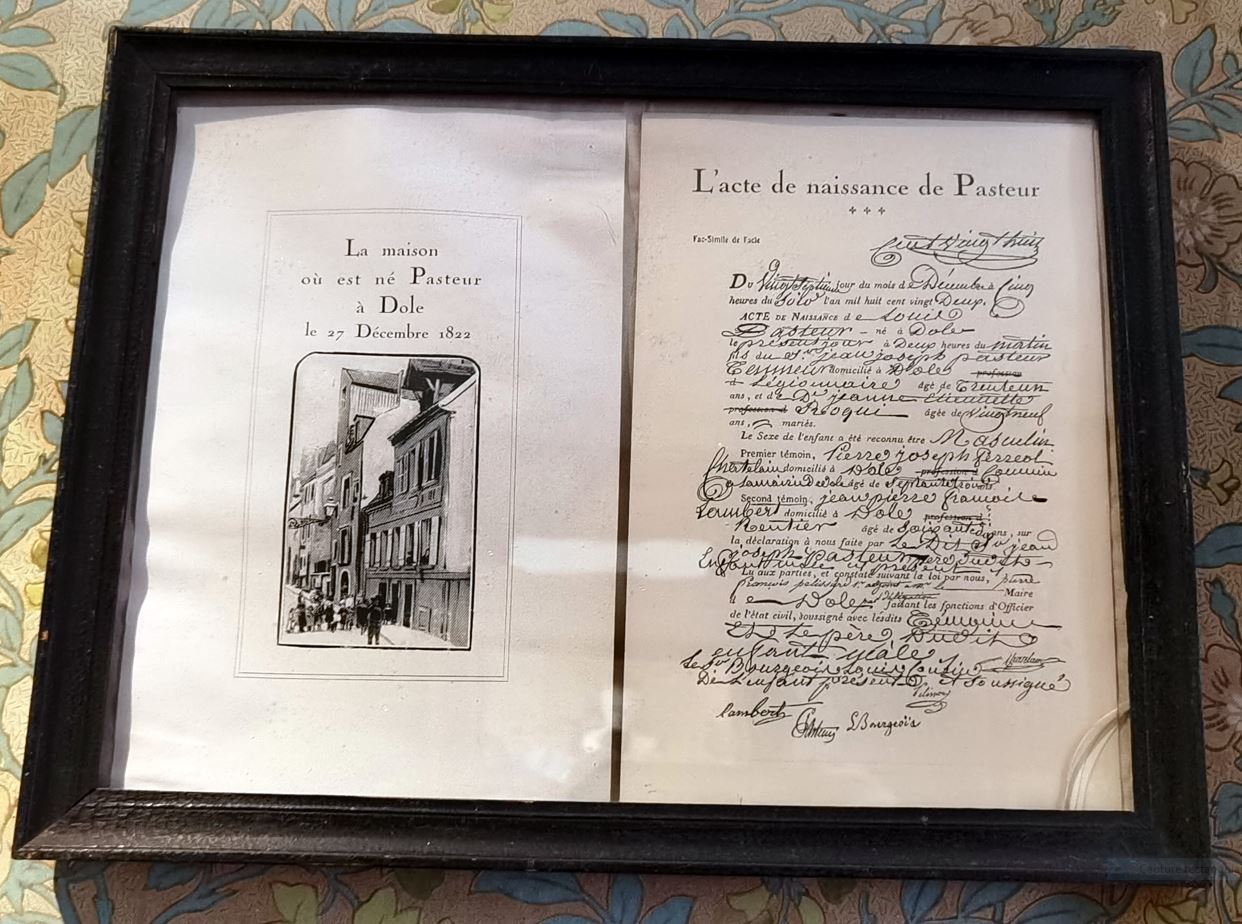 La maison
où est né Pasteur
à Dole
le 27 Décembre 1822
L'acte de naissance de Pasteur
Fac-Simile de l'acte
Cent Vingt huit
Du Vingt Septieme jour du mois de Décembre à Cinq
heures du Soir l'an mil huit cent vingt Deux.
ACTE DE NAISSANCE de Louis
Pasteur né à Dole
le présent jour à Deux heures du matin
fils du Sr. jean joseph pasteur
Tenneur domicilié à Dole profession
d légionnaire agé de Trenteun
ans, et de De jeanne Etiennette
profession d Roqui agée de Vingt neuf
ans, mariés.
Le Sexe de l'enfant a été reconnu être Masculin
Premier témoin, Pierre joseph ferreol
Chatelain domicilié à Dole profession d
agé de Septante
Second témoin, jean pierre françois
Lambert domicilié à Dole profession d
Rentier âgé de Soixante ans, sur
la déclaration à nous faite par Le Dit Sr jean
joseph Pasteur père du dit
Enfant mâle
Lu aux parties, et constaté suivant la loi par nous,
Maire
de Dole faisant les fonctions d'Officier
de l'état civil, soussigné avec lesdits Témoins
Et Le père Dudit
enfant Mâle Chatelain
Le Sr Bourgeois Louis Cousin
De L'enfant présent et Soussigné
Lambert LBourgeois
Capture rectangulaire